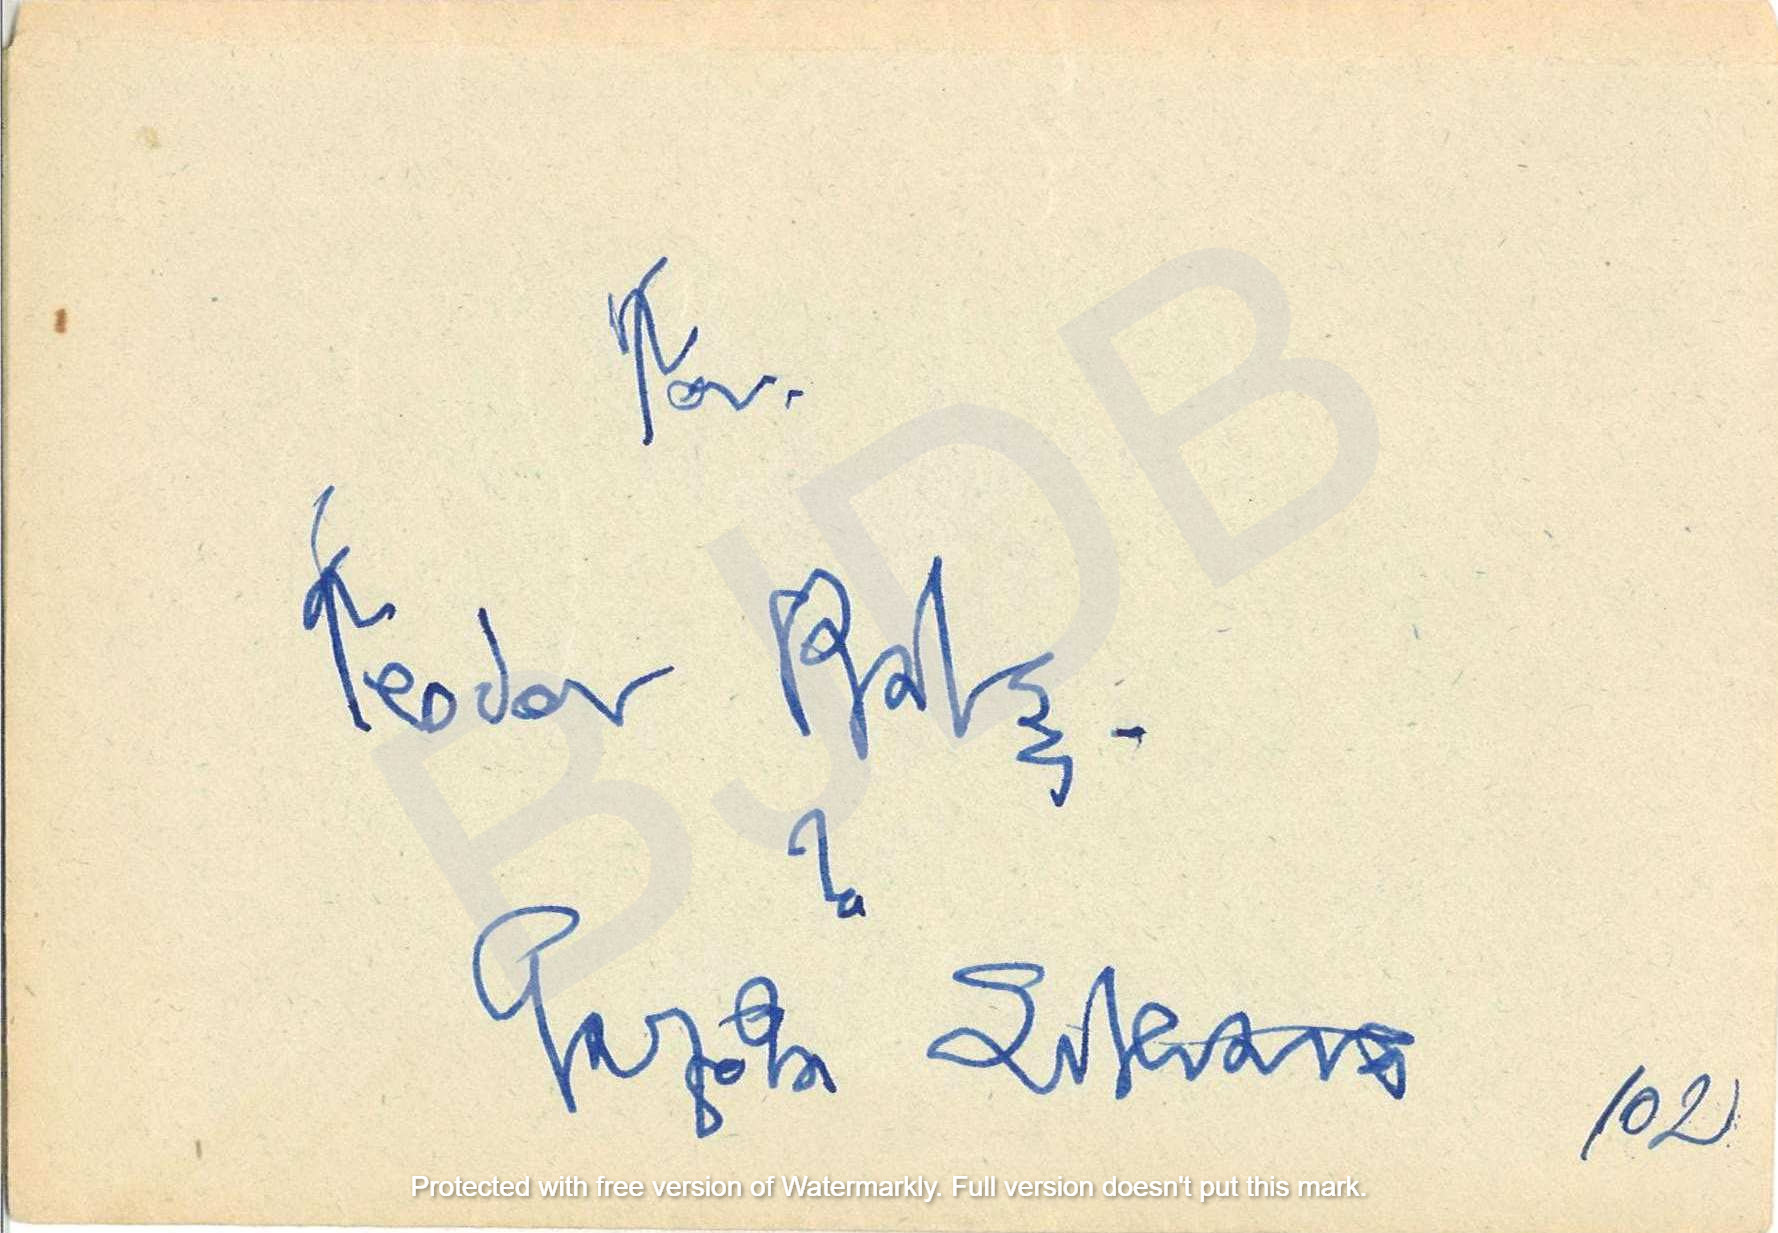 Tov.
Teodor Balș. -
La
Gazeta Literară
102
BJDB
Protected with free version of Watermarkly. Full version doesn't put this mark.